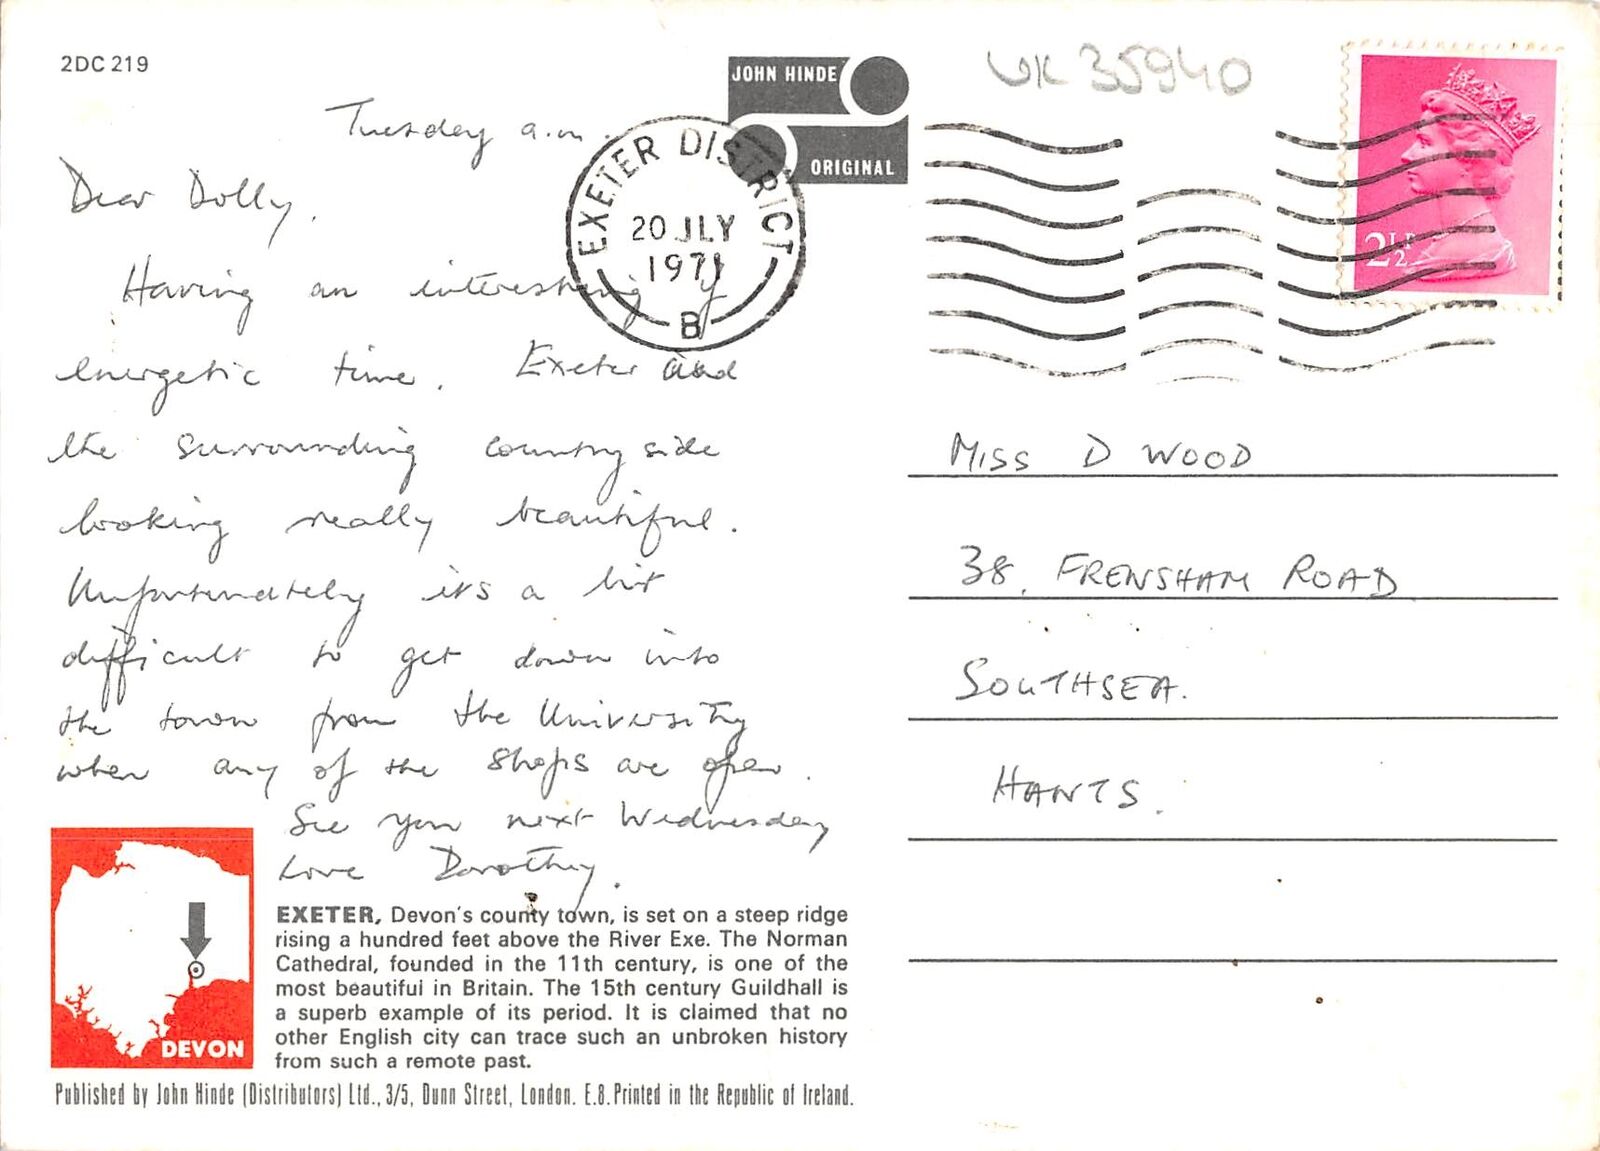 2DC 219
JOHN HINDE
ORIGINAL
UK 35940
EXETER DISTRICT
20 JLY
1971
B
2½P
Tuesday a.m.
Dear Dolly,
Having an interesting y
energetic time. Exeter and
the surrounding countryside
looking really beautiful.
Unfortunately its a bit
difficult to get down into
the town from the University
when any of the shops are open.
See you next Wednesday
Love Dorothy.
MISS D WOOD
38, FRENSHAM ROAD
SOUTHSEA.
HANTS.
DEVON
EXETER, Devon's county town, is set on a steep ridge
rising a hundred feet above the River Exe. The Norman
Cathedral, founded in the 11th century, is one of the
most beautiful in Britain. The 15th century Guildhall is
a superb example of its period. It is claimed that no
other English city can trace such an unbroken history
from such a remote past.
Published by John Hinde (Distributors) Ltd., 3/5, Dunn Street, London. E.8. Printed in the Republic of Ireland.